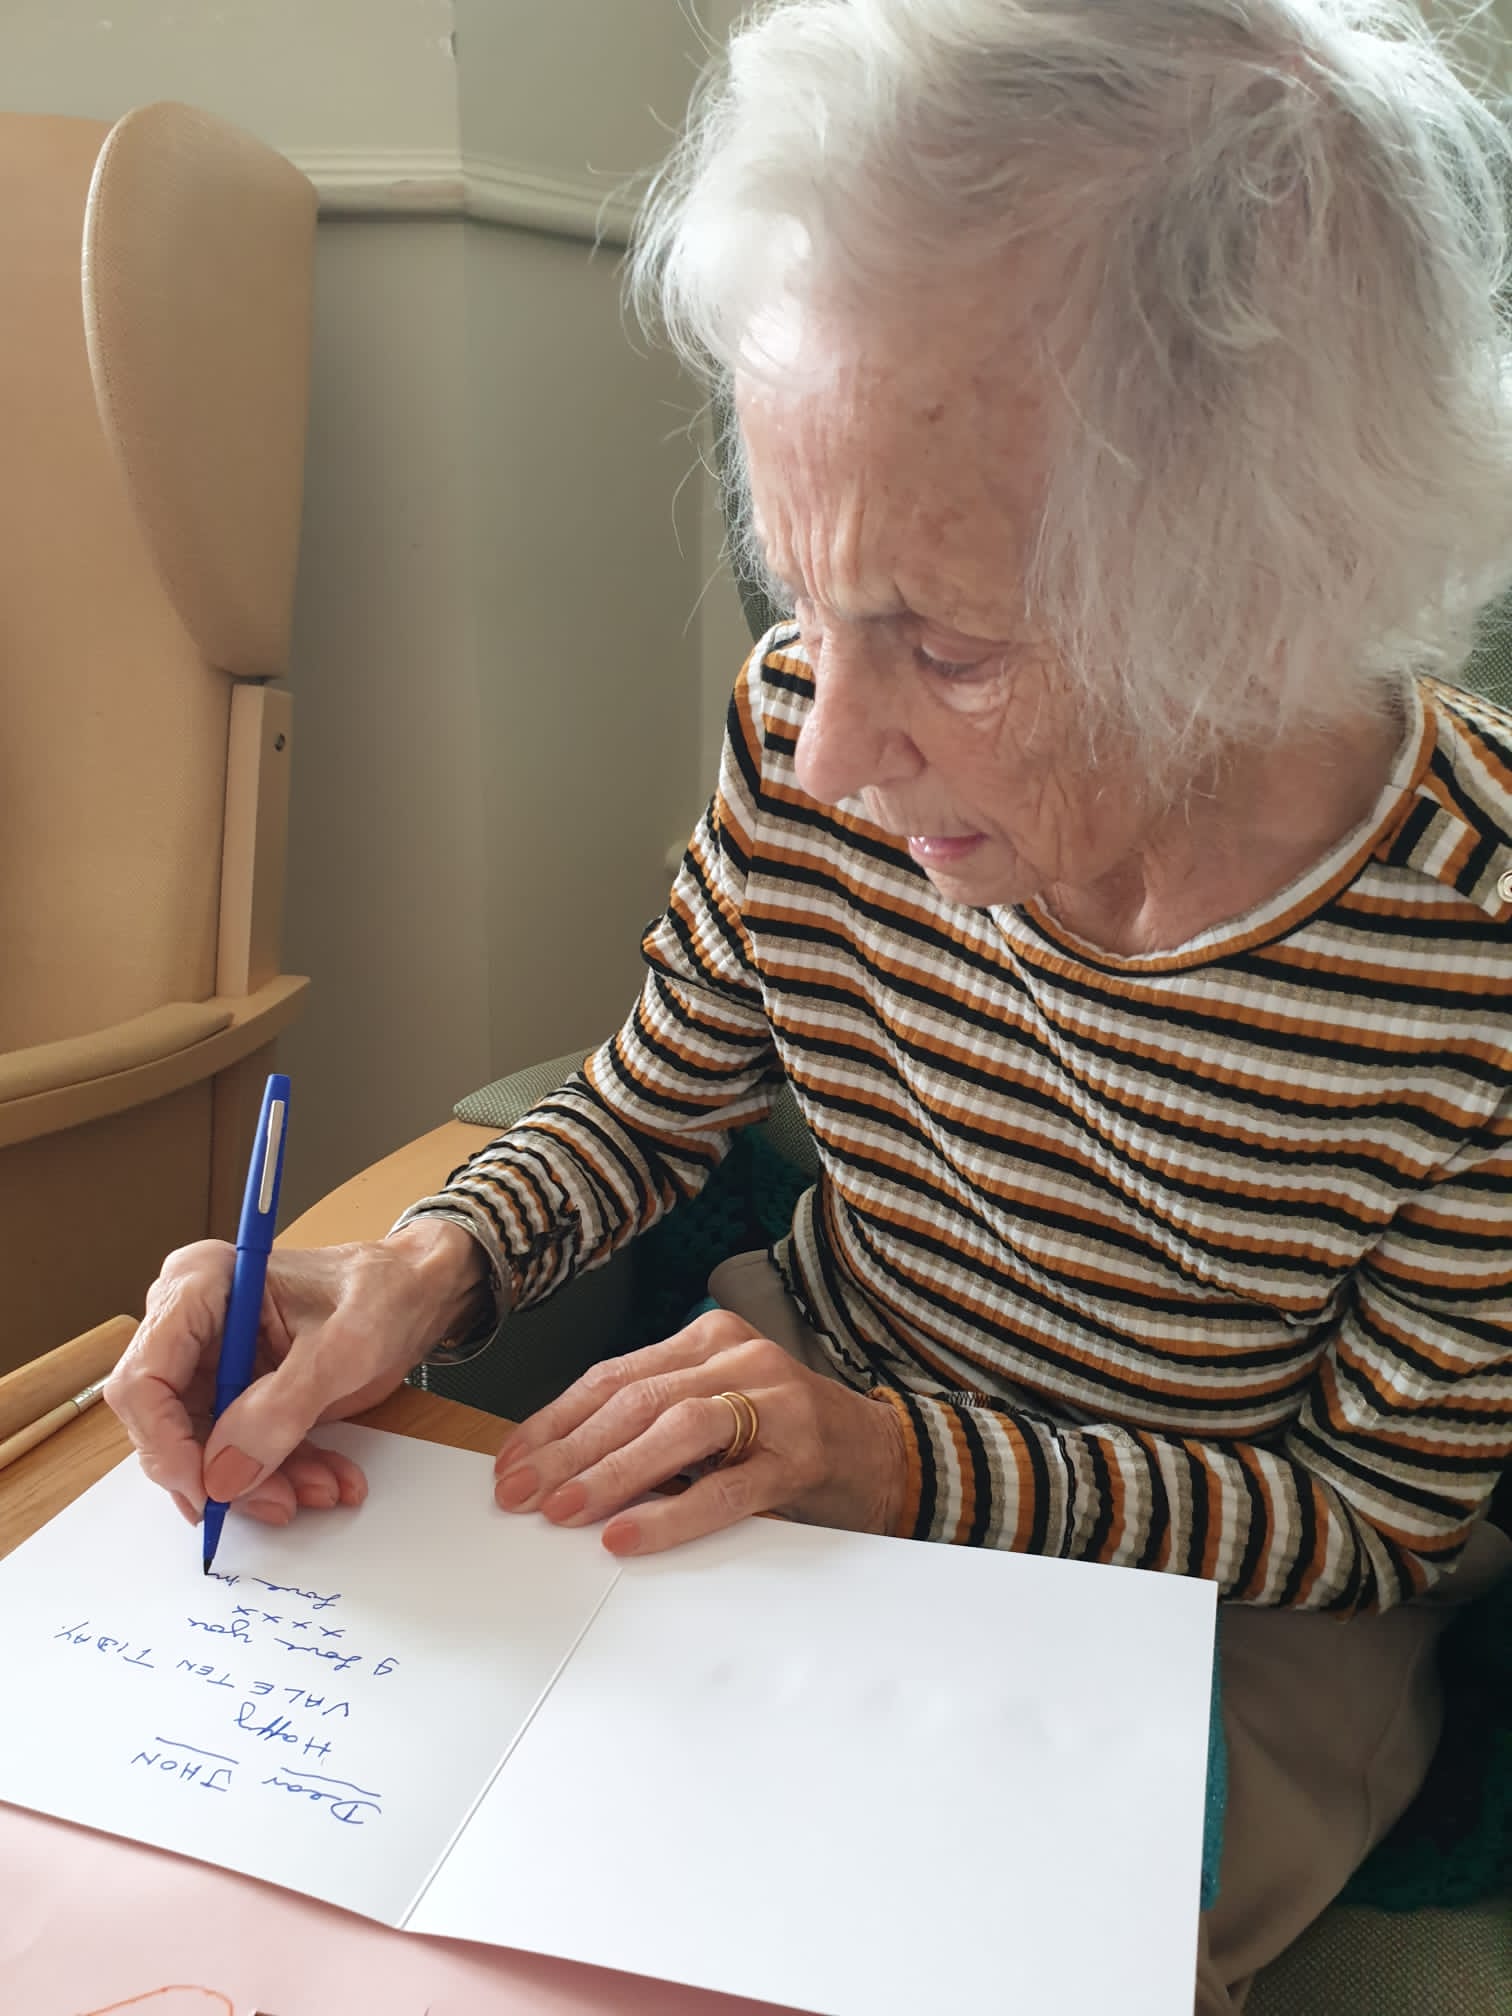 Dear JHON
Happy
VALE TEN TIDAY.
I Love you
xxxx
Love m